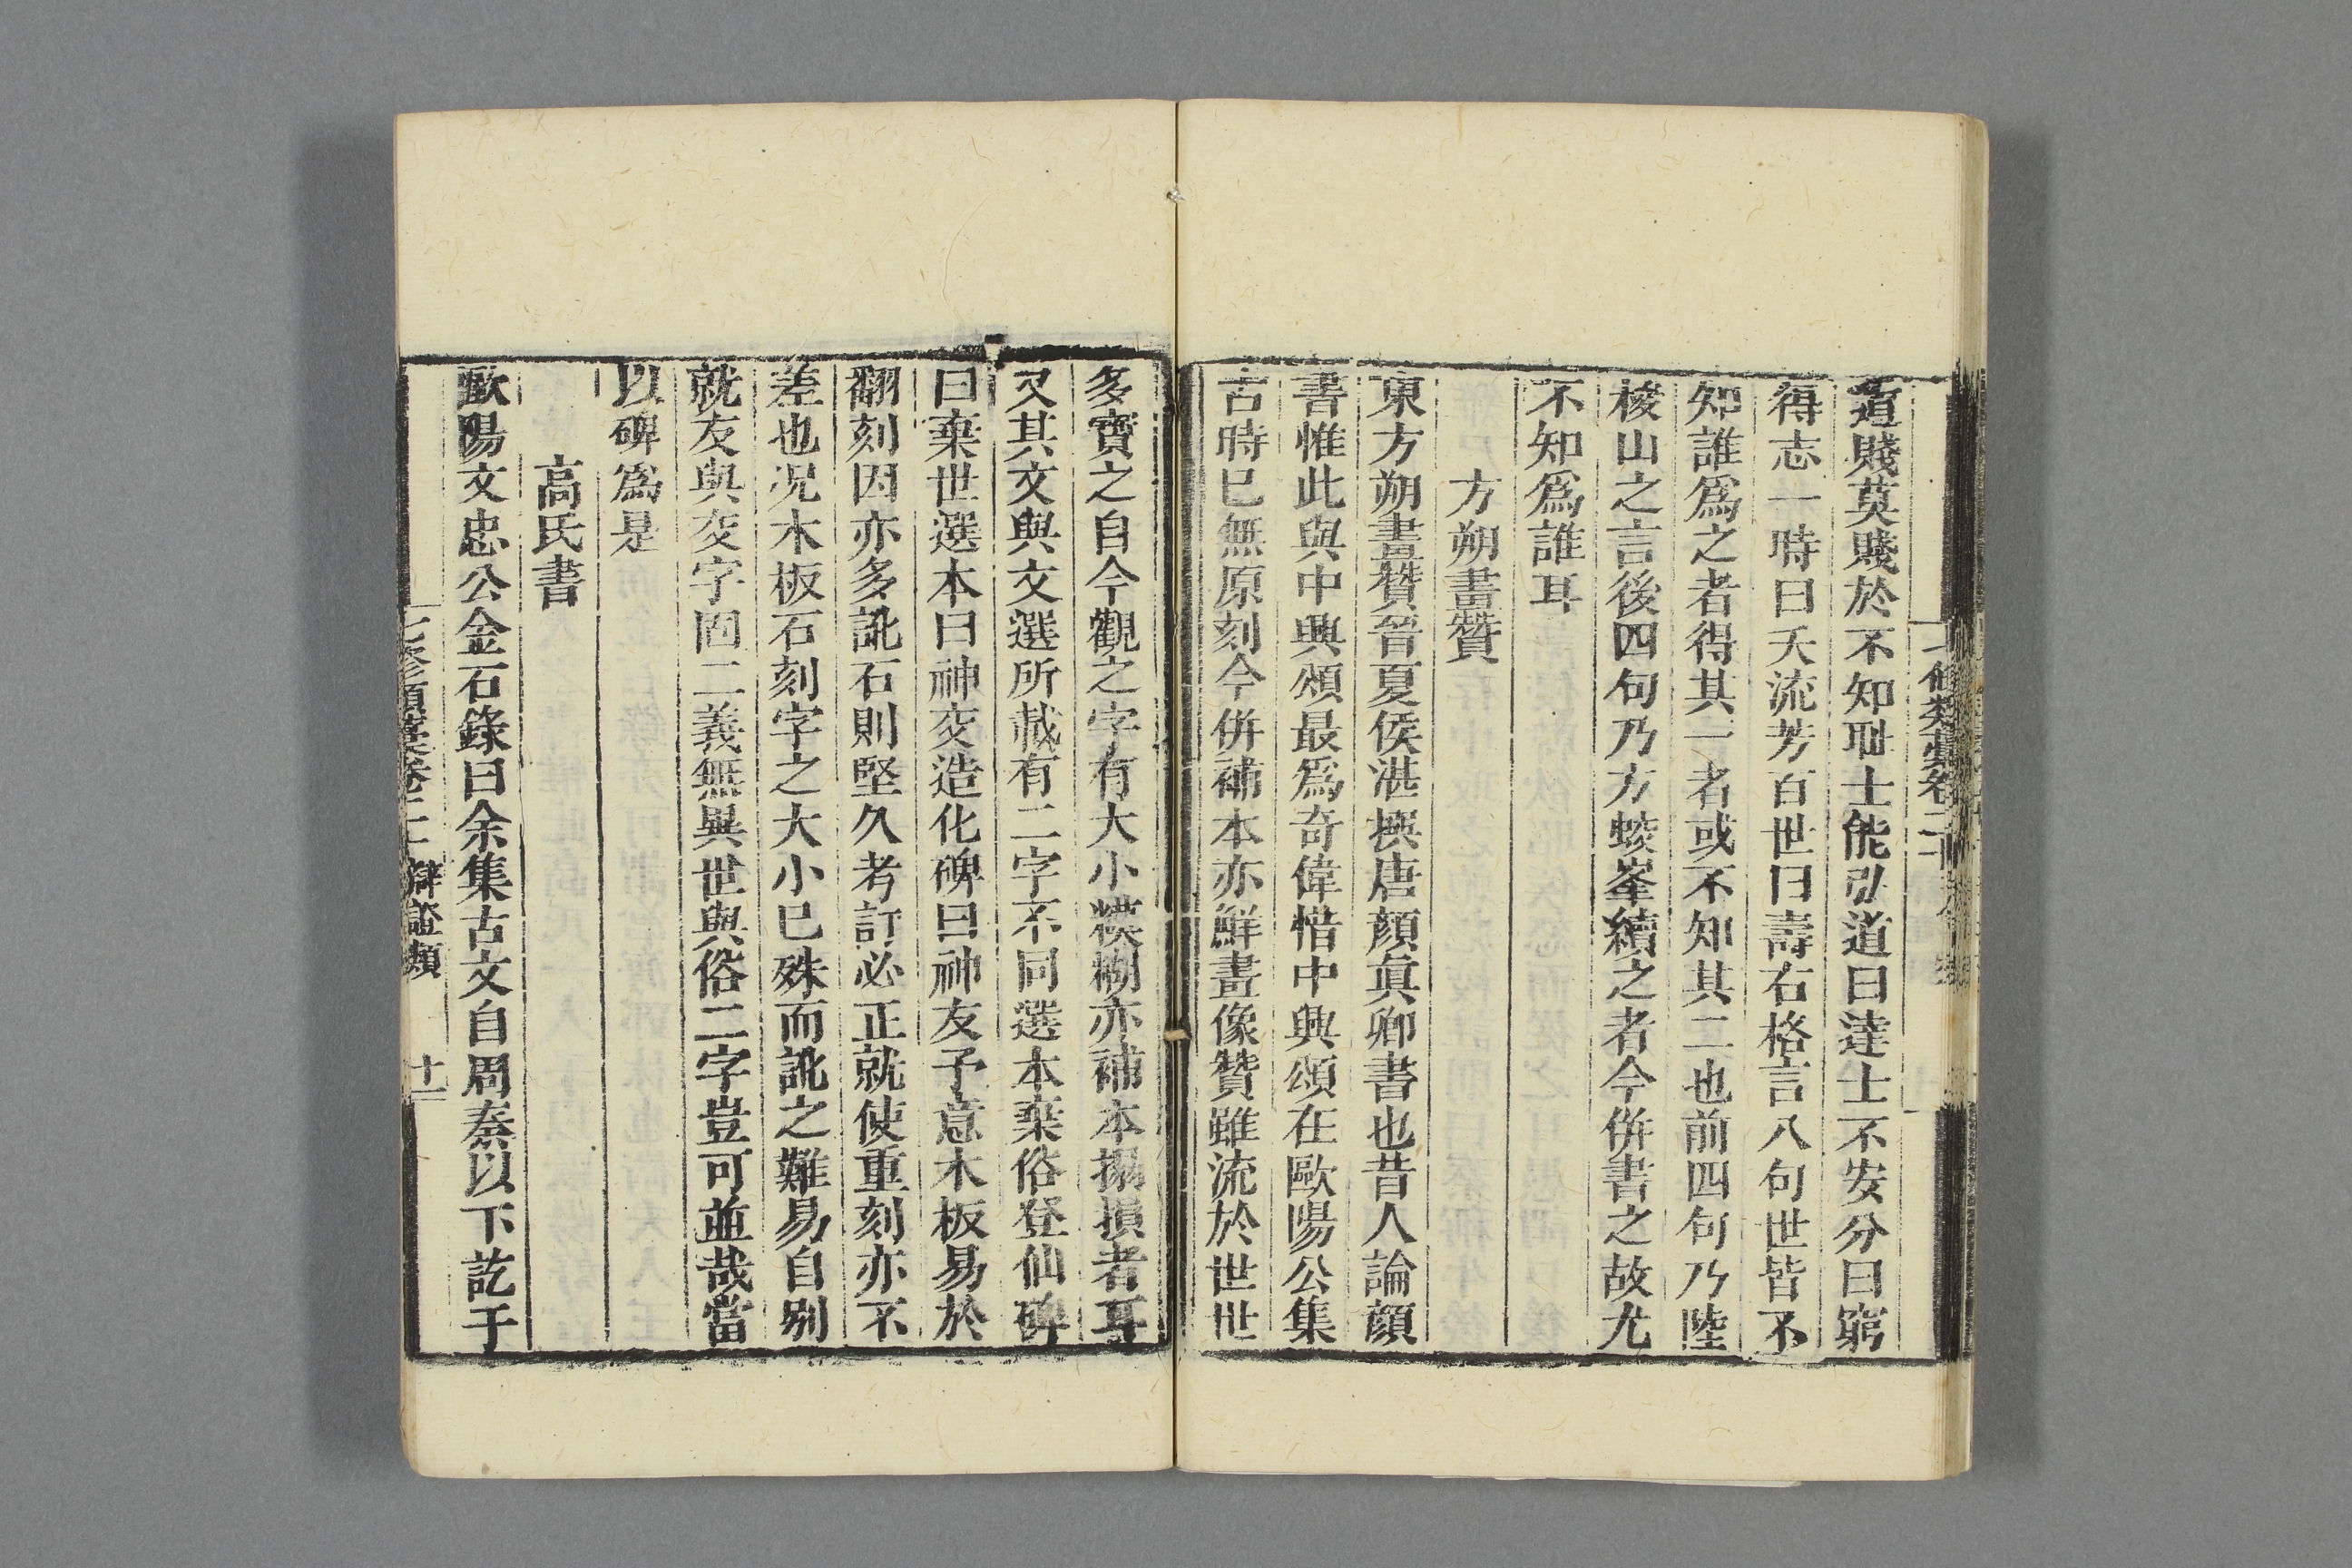 道賤莫賤於不知耻士能弘道曰達士不安分曰窮
得志一時曰夭流芳百世曰壽右格言八句世皆不
知誰爲之者得其一者或不知其二也前四句乃陸
梭山之言後四句乃方蛟峯續之者今併書之故尤
不知爲誰耳
方朔畫贊
東方朔畫贊晉夏侯湛撰唐顏眞卿書也昔人論顏
書惟此與中興頌最爲奇偉惜中興頌在歐陽公集
古時已無原刻今併補本亦鮮畫像贊雖流於世世
多寶之自今觀之字有大小糢糊亦補本搨損者耳
又其文與文選所載有二字不同選本棄俗登仙碑
曰棄世選本曰神交造化碑曰神友予意木板易於
翻刻因亦多訛石則堅久考訂必正就使重刻亦不
差也况木板石刻字之大小已殊而訛之難易自別
就友與交字固二義無異世與俗二字豈可並哉當
以碑爲是
高氏書
歐陽文忠公金石錄曰余集古文自周秦以下訖于
七修類藁卷二 辯證類 十一